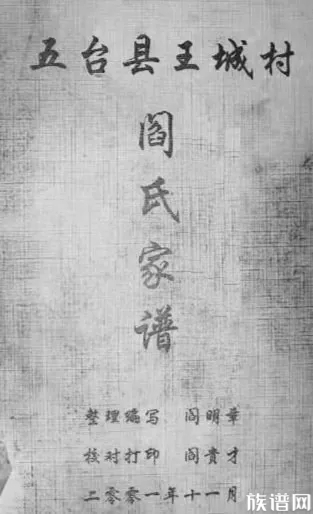 五台县王城村
阎氏家谱
整理编写 阎明章
校对打印 阎贵才
二零零一年十一月
族谱网